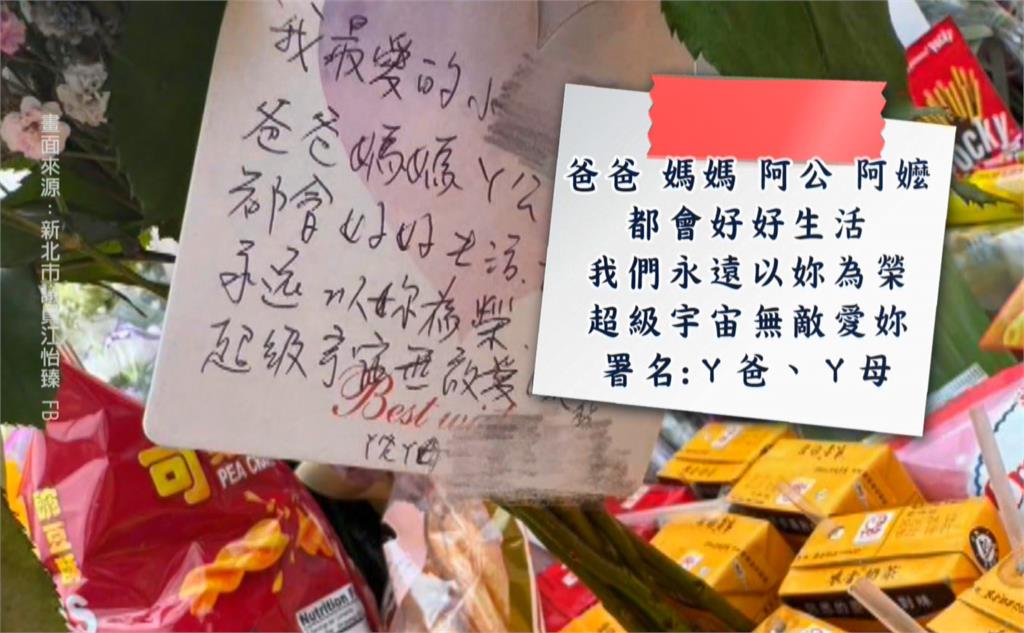 我最愛的小
爸爸 媽媽 ㄚ公
都會好好生活
永遠以妳為榮
超級宇宙無敵愛
Best
ㄚ爸ㄚ母
爸爸 媽媽 阿公 阿嬤
都會好好生活
我們永遠以妳為榮
超級宇宙無敵愛妳
署名:ㄚ爸、ㄚ母
畫面來源:新北市議員江怡臻 FB
可
PEA
Nutrition